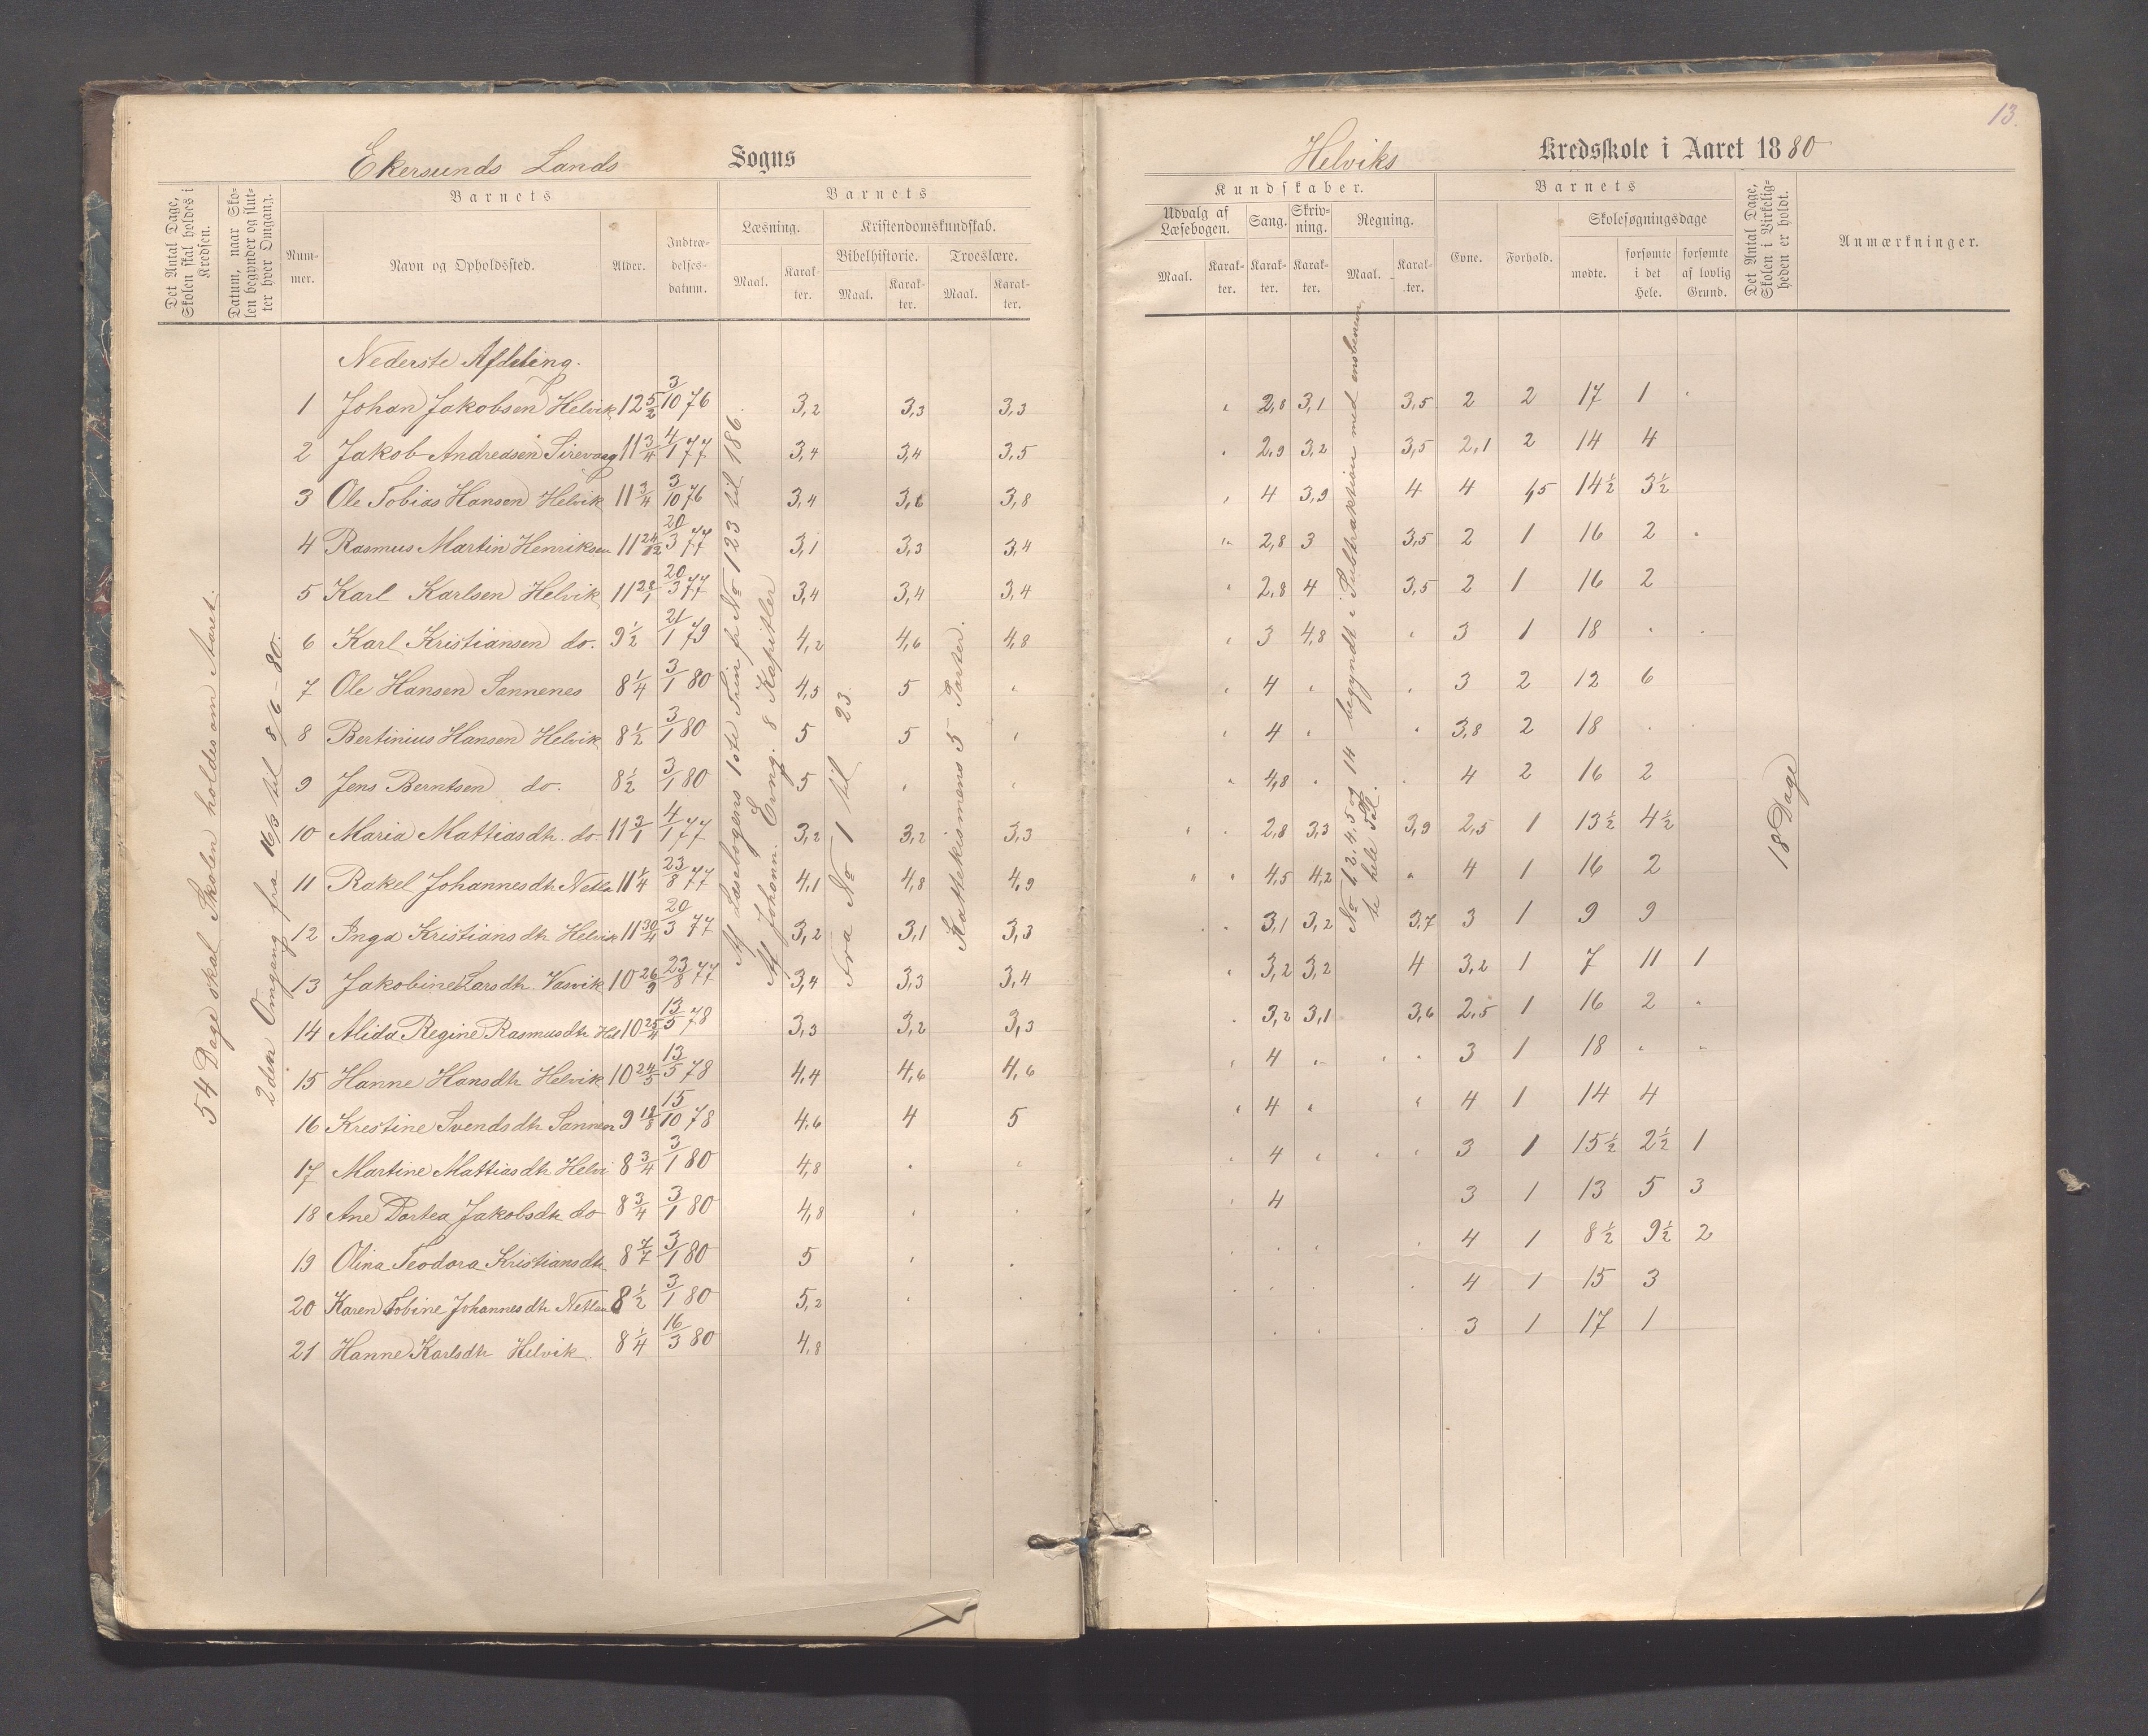 13.
Ekersunds Lands Sogns
Helviks Kredsskole i Aaret 1880
Det Antal Dage, Skolen skal holdes i Kredsen.
Datum, naar Skolen begynder og slutter hver Omgang.
Barnets
Nummer.
Navn og Opholdssted.
Alder.
Indtrædelsesdatum.
Barnets
Læsning.
Maal.
Karakter.
Kristendomskundskab.
Bibelhistorie.
Maal.
Karakter.
Troeslære.
Maal.
Karakter.
Kundskaber.
Udvalg af Læsebogen.
Maal.
Karakter.
Sang.
Karakter.
Skrivning.
Karakter.
Regning.
Maal.
Karakter.
Barnets
Evne.
Forhold.
Skolesøgningsdage
mødte.
forsømte i det Hele.
forsømte af lovlig Grund.
Det Antal Dage, Skolen i Virkeligheden er holdt.
Anmærkninger.
54 Dage skal Skolen holdes om Aaret.
2den Omgang fra 16/3 til 8/6 - 80.
Læsebogens 1ste Trin fr No 123 til 186.
Johann. Evng. 8 Kapitler
Fra No 1 til 23.
Kattekismens 5 Parter.
No 1, 2, 4, 5 og 14 begyndt i Subtraktion med ensbenæv
te hele Tal.
18 Dage
Nederste Afdeling.
1 Johan Jakobsen Helvik 12 5/2 3/10 76 3,2 3,3 3,3 2,8 3,1 3,5 2 2 17 1
2 Jakob Andreasen Sirevaag 11 3/4 4/1 77 3,4 3,4 3,5 2,9 3,2 3,5 2,1 2 14 4
3 Ole Tobias Hansen Helvik 11 3/4 3/10 76 3,4 3,6 3,8 4 3,9 4 4 1,5 14½ 3½
4 Rasmus Martin Henriksen 11 24/12 20/3 77 3,1 3,3 3,4 2,8 3 3,5 2 1 16 2
5 Karl Karlsen Helvik 11 28/1 20/3 77 3,4 3,4 3,4 2,8 4 3,5 2 1 16 2
6 Karl Kristiansen do. 9½ 21/1 79 4,2 4,6 4,8 3 4,8 3 1 18
7 Ole Hansen Sannenes 8¼ 3/1 80 4,5 5 4 3 2 12 6
8 Bertinius Hansen Helvik 8½ 3/1 80 5 5 4 3,8 2 18
9 Jens Berntsen do. 8½ 3/1 80 5 4,8 4 2 16 2
10 Maria Mattiasdtr. do 11 3/1 4/1 77 3,2 3,2 3,3 2,8 3,3 3,9 2,5 1 13½ 4½
11 Rakel Johannesdtr Netla 11¼ 23/8 77 4,1 4,8 4,9 4,5 4,2 4 1 16 2
12 Inga Kristiansdtr Helvik 11 30/4 20/3 77 3,2 3,1 3,3 3,1 3,2 3,7 3 1 9 9
13 Jakobine Larsdtr Vasvik 10 26/9 23/8 77 3,4 3,3 3,4 3,2 3,2 4 3,2 1 7 11 1
14 Alida Regine Rasmusdtr Hel 10 25/4 13/5 78 3,3 3,2 3,3 3,2 3,1 3,6 2,5 1 16 2
15 Hanne Hansdtr Helvik 10 24/5 13/5 78 4,4 4,6 4,6 4 3 1 18
16 Krestine Svendsdtr Sannen 9 18/8 15/10 78 4,6 4 5 4 4 1 14 4
17 Martine Mattiasdtr Helvi 8¾ 3/1 80 4,8 4 3 1 15½ 2½ 1
18 Ane Dortea Jakobsdtr do 8¾ 3/1 80 4,8 4 3 1 13 5 3
19 Olina Teodora Kristiansdtr 8 7/7 3/1 80 5 4 1 8½ 9½ 2
20 Karen Tobine Johannesdtr Netlan 8½ 3/1 80 5,2 4 1 15 3
21 Hanne Karlsdtr Helvik. 8¼ 16/3 80 4,8 3 1 17 1